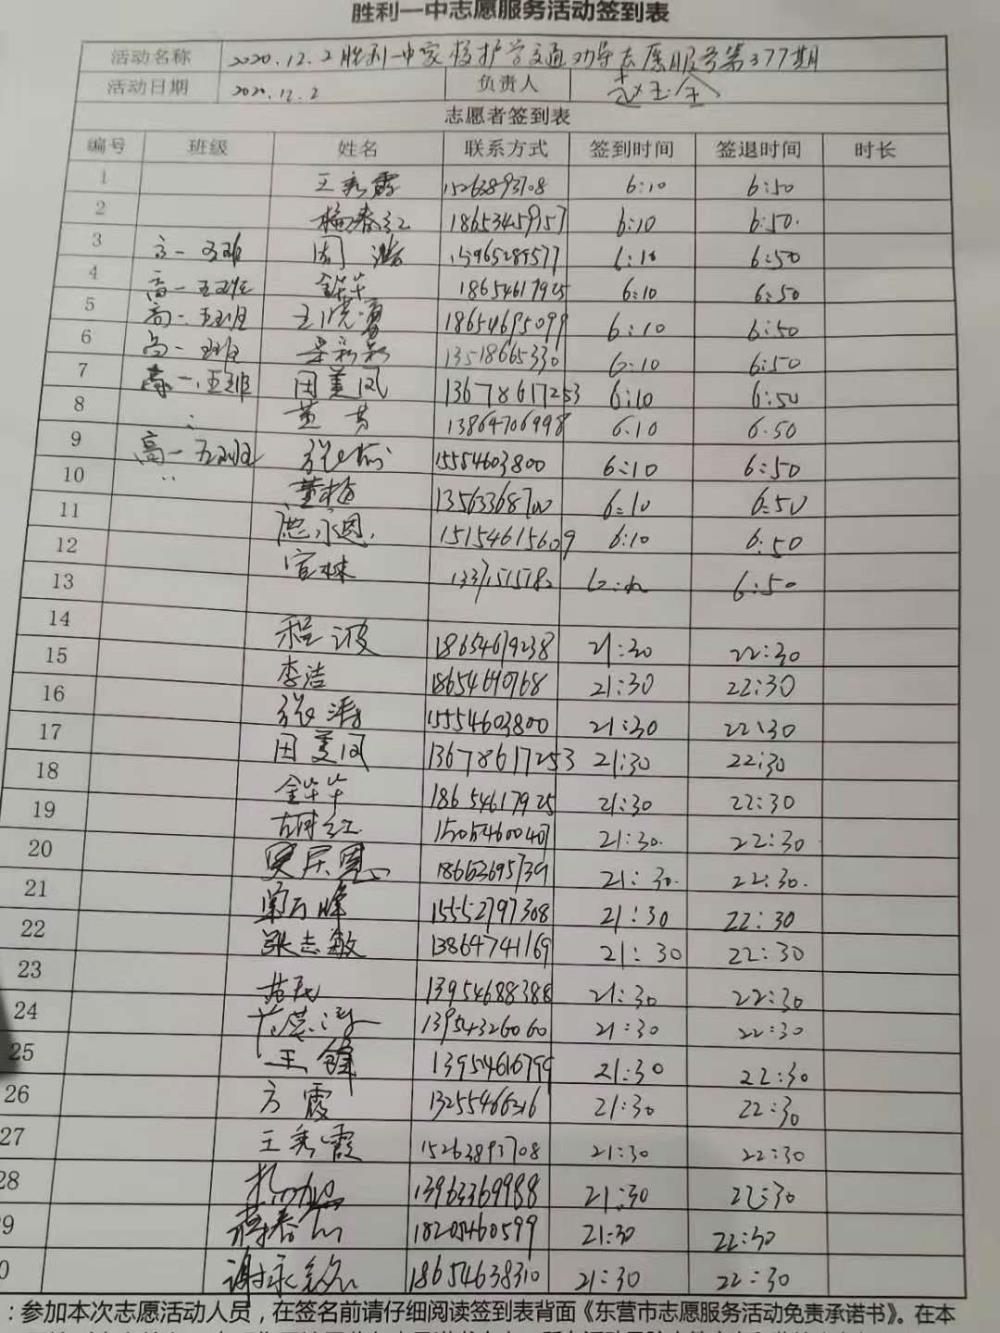 胜利一中志愿服务活动签到表
活动名称 2020.12.2胜利一中家校护学交通劝导志愿服务第377期
活动日期 2020.12.2 负责人 赵玉全
志愿者签到表
编号 班级 姓名 联系方式 签到时间 签退时间 时长
1 王秀霞 15263893708 6:10 6:50
2 梅春红 18653459957 6:10 6:50
3 高一五班 周 15965289577 6:10 6:50
4 高一五班 金华 18654617925 6:10 6:50
5 高一五班 王晓勇 18654695099 6:10 6:50
6 高一五班 13518665330 6:10 6:50
7 高一五班 田美凤 13678617253 6:10 6:50
8 董芳 13864706998 6:10 6:50
9 高一五班 张 15554603800 6:10 6:50
10 董梅 13563368700 6:10 6:50
11 15154615609 6:10 6:50
12 13371515182 6:50
13
14 程波 18654619238 21:30 22:30
15 李洁 18654690768 21:30 22:30
16 张涛 15554603800 21:30 22:30
17 田美凤 13678617253 21:30 22:30
18 金华华 18654617925 21:30 22:30
19 胡红 15054600407 21:30 22:30
20 18663695739 21:30 22:30
21 15552797308 21:30 22:30
22 张志敏 13864741169 21:30 22:30
23 苗民 13954688388 21:30 22:30
24 13954326060 21:30 22:30
25 王锋 13954616799 21:30 22:30
26 方霞 13255466216 21:30 22:30
27 王秀霞 15263893708 21:30 22:30
28 13963369988 21:30 22:30
9 蒋春 18205460599 21:30 22:30
0 谢永 18654638310 21:30 22:30
：参加本次志愿活动人员，在签名前请仔细阅读签到表背面《东营市志愿服务活动免责承诺书》。在本